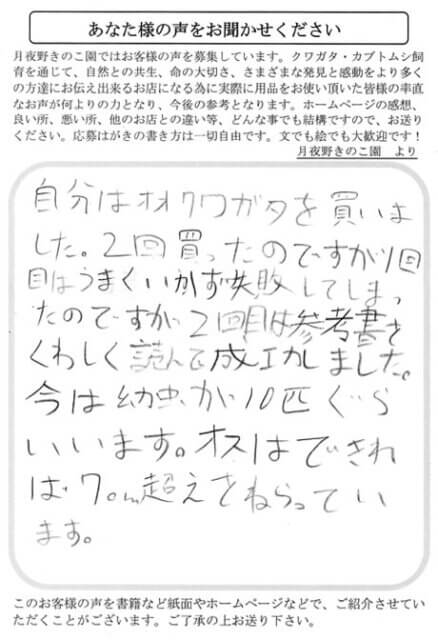 あなた様の声をお聞かせください
月夜野きのこ園ではお客様の声を募集しています。クワガタ・カブトムシ飼
育を通じて、自然との共生、命の大切さ、さまざまな発見と感動をより多く
の方達にお伝え出来るお店になる為に実際に用品をお使い頂いた皆様の率直
なお声が何よりの力となり、今後の参考となります。ホームページの感想、
良い所、悪い所、他のお店との違い等、どんな事でも結構ですので、お送り
ください。応募はがきの書き方は一切自由です。文でも絵でも大歓迎です！
月夜野きのこ園　より
自分はオオクワガタを買いま
した。2回買ったのですが1回
目はうまくいかず失敗してしまっ
たのですが2回目は参考書を
くわしく読んで成功しました。
今は幼虫が10匹ぐら
いいます。オスはできれ
ば7。㎝超えをねらってい
ます。
このお客様の声を書籍など紙面やホームページなどで、ご紹介させてい
ただくことがございます。ご了承の上お送り下さい。